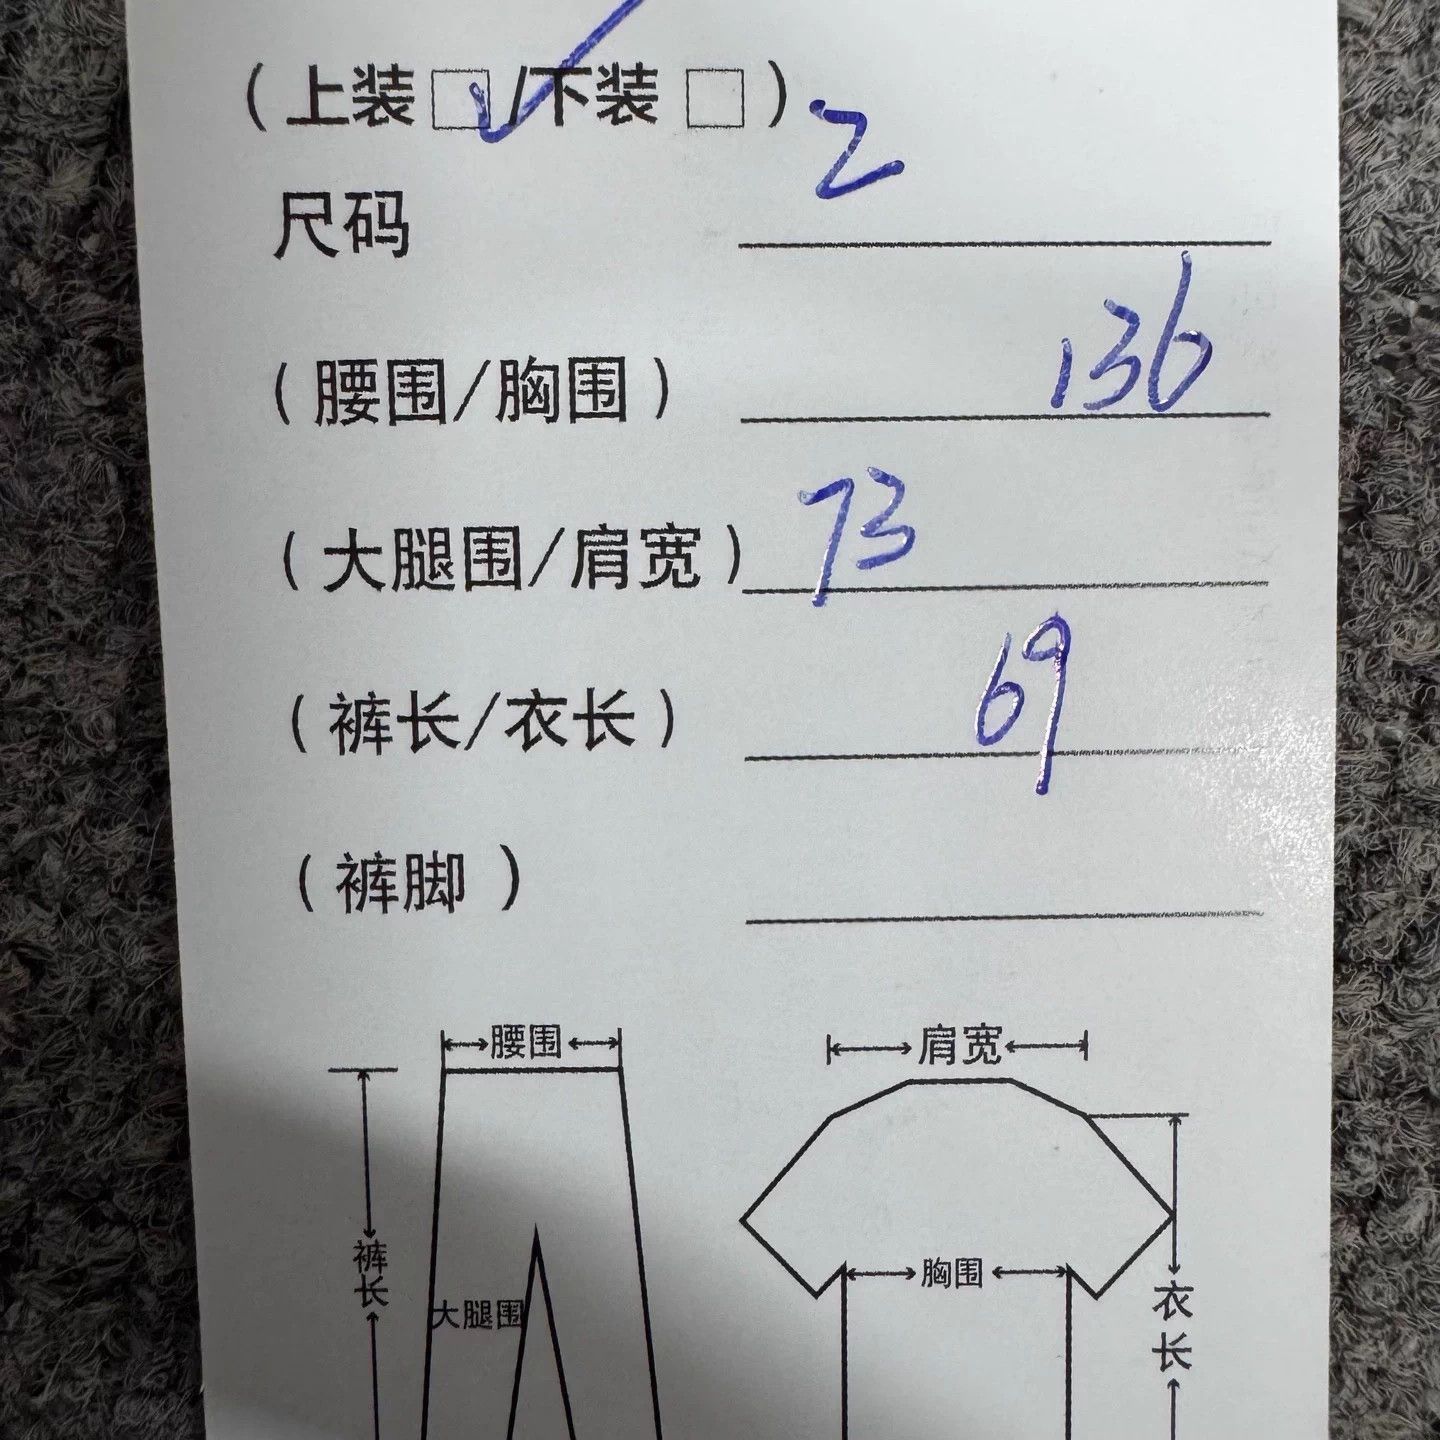 （上装☑/下装□）2
尺码
（腰围/胸围）136
（大腿围/肩宽）73
（裤长/衣长）69
（裤脚）
腰围
肩宽
裤长
大腿围
胸围
衣长